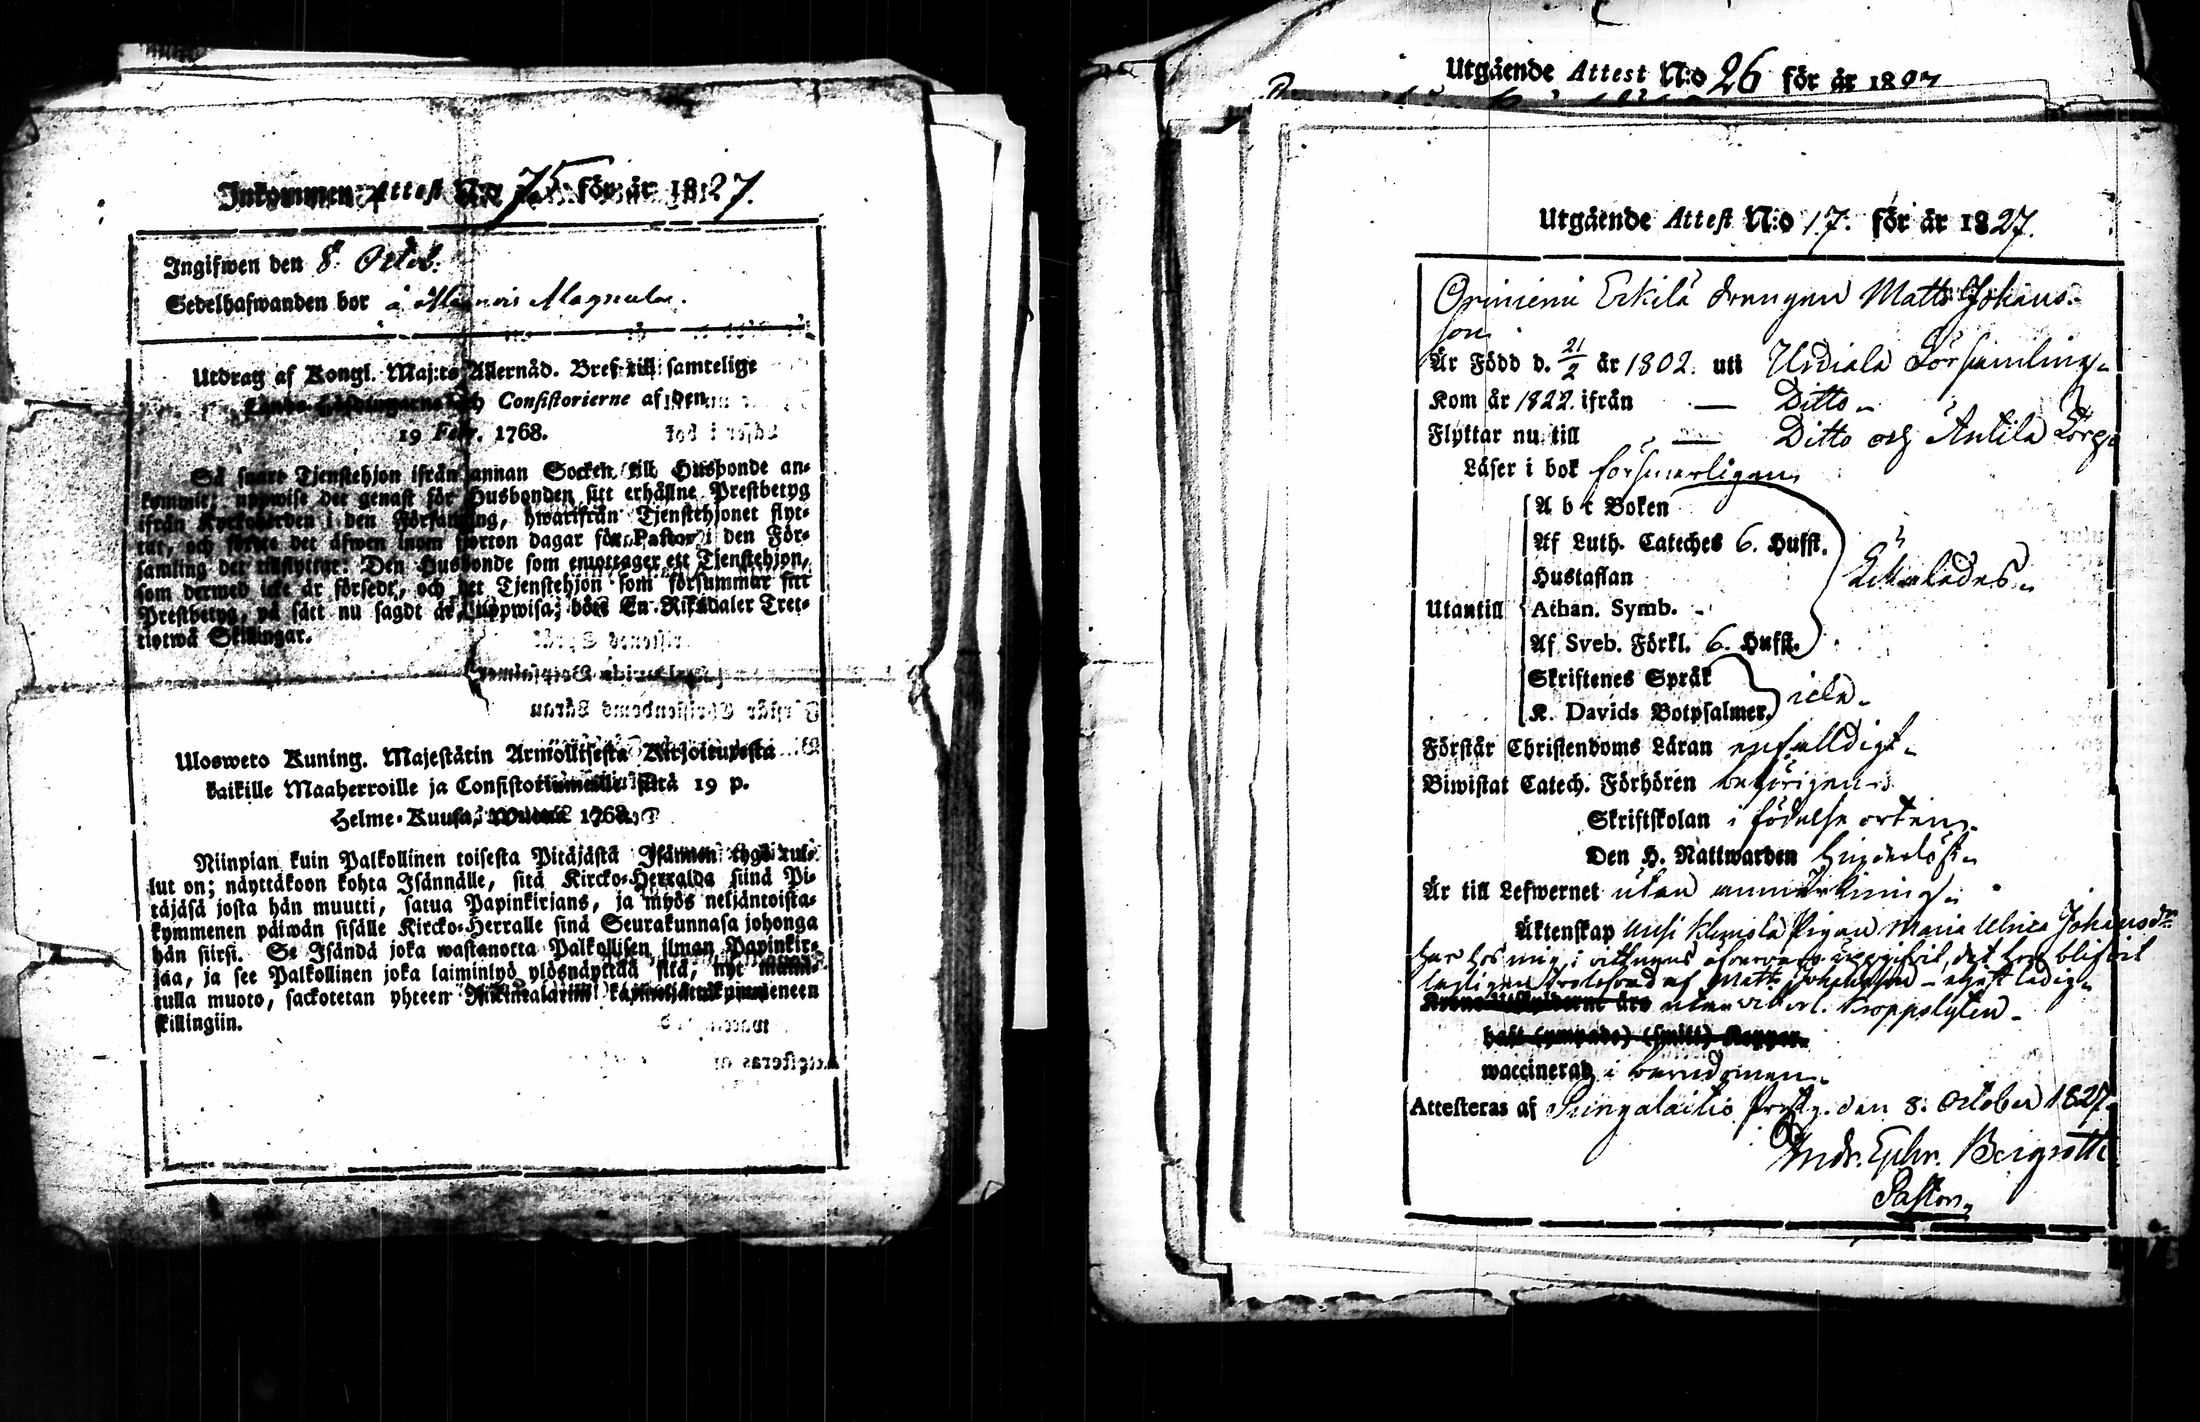 Inkommen Attest N:o 75 för år 1827.
Ingifwen den 8 Octob.
Sedelhafwanden bor å
Utdrag af Kongl. Maj:ts Allernåd. Bref till samtelige
Consistorierne af den
19 Febr. 1768.
Så snart Tjenstehjon ifrån annan Socken till Husbonde an-
kommit; uppwise det genast för Husbonden sitt erhållne Prestbetyg
ifrån Kyrkoherden i den Församling, hwarifrån Tjenstehjonet flyt-
tat, och förete det äfwen inom fjorton dagar för Pastor i den För-
samling det tillflyttat: Den Husbonde som emottager ett Tjenstehjon,
som dermed icke är försedt, och det Tjenstehjon som försummar sitt
Prestbetyg, på sätt nu sagdt är, uppwisa; böte En Riksdaler Tret-
tiotwå Skillingar.
Ulosweto Kuning. Majestätin Armollisesta Kirjoituxesta
kaikille Maaherroille ja Consistoriumeille siitä 19 p.
Helme-Kuusa, Wuona 1768.
Niinpian kuin Palkollinen toisesta Pitäjästä Isännen tygö tul-
lut on; näyttäkoon kohta Isännälle, sitä Kircko-Herralda siinä Pi-
täjäsä josta hän muutti, saatua Papinkirjans, ja myös neljäntoista-
kymmenen päiwän sisälle Kircko-Herralle sinä Seurakunnasa johonga
hän siirsi. Se Isändä joka wastanotta Palkollisen ilman Papinkir-
jaa, ja see Palkollinen joka laiminlyö ylösnäyttää sitä, nyt maini-
tulla muoto, sackotetan yhteen Riikintalariin kahteenkymmeneen
skillingiin.
Utgående Attest N:o 26 för år 1827
Utgående Attest N:o 17. för år 1827.
Orinieni Erkilä drengen Matts Johans-
son
Är Född d. 21/2 år 1802. uti Urdiala Församling
Kom år 1822. ifrån — Ditto
Flyttar nu till — Ditto och Antila Torp
Läser i bok försvarligen
A b c Boken
Af Luth. Cateches 6. Hufst.
Hustaflan
Likaledes
Utantill Athan. Symb. -
Af Sveb. Förkl. 6. Hufst.
Skriftenes Språk
K. Davids Botpsalmer. icke
Förstår Christendoms Läran enfalldigt
Biwistat Catech. Förhören behörigen
Skriftskolan i födelse orten
Den H. Nattwarden
Är till Lefwernet utan anmärkning
Äktenskap Uusi Klemola Pigan Maria Ulrica Johansdr
har hos mig i vittnens öfvervaro uppgifvit, det hon blifvit
lagligen trolofvad af Matts Johansson - eljest ledig
utan Kroppslyten
haft (ympade) (smitt) Koppor
waccinerad i barndomen
Attesteras af Pungalaitio Prestg. den 8. October 1827.
Andr. Ephr. Bergroth
Pastor